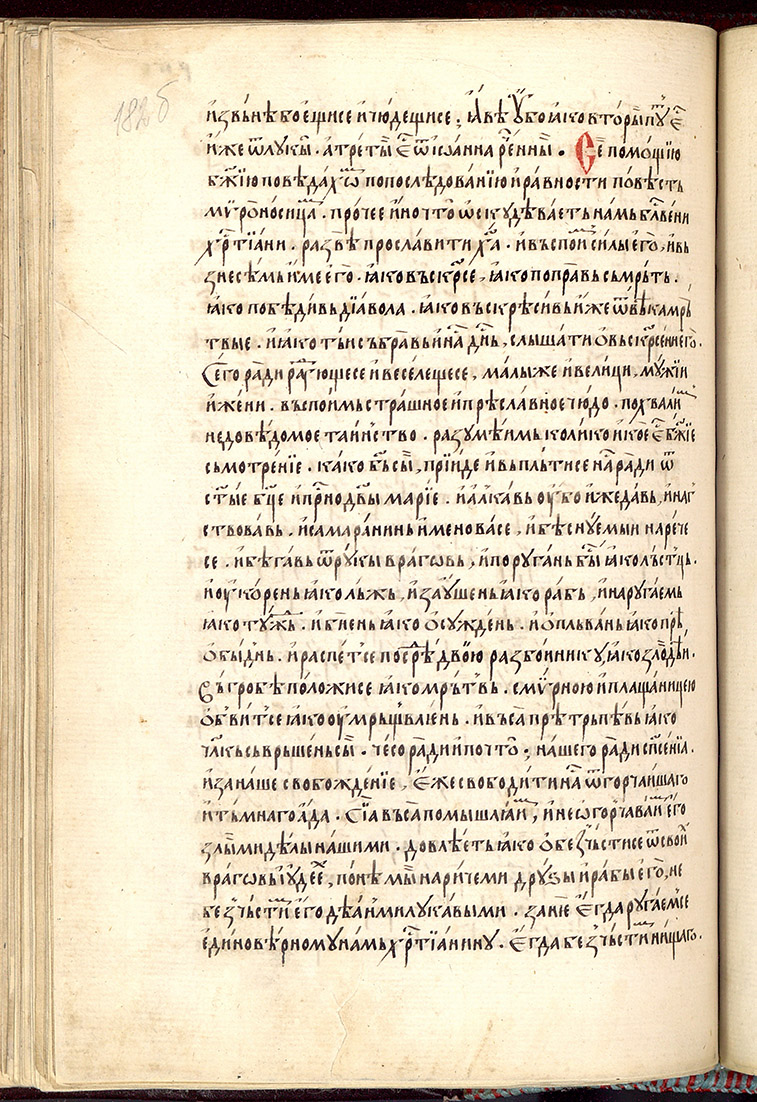 182б
и҆звьнѣ боещисе и҆ чюдещисе ; ꙗ҆вѣ ᲂу҆бо ꙗ҆ко вторы пꙋ є҆
и҆же ѿ лꙋкы . а҆ третїи є҆ ѿ і҆ѡанна р̑еннїи . Се помощїю
б҃жїю повѣдахѡ по послѣдованїю и҆ равности повѣсть
мѵ̈роносица . прочее и҆но что ѡ҆скꙋдѣваеть намь бл҃вени
хрⷭ҇тїани . развѣ прославити х҃а . и҆ въспои силы є҆го , и҆ вь
знесѣмь и҆ме є҆го . ꙗ҆ко въскрⷭ҇се , ꙗ҆ко поправь сьмрьть .
ꙗ҆ко побѣдивь дїавола . ꙗ҆ко въскрѣсивь и҆же ѿ вѣка мрь
твые . и҆ ꙗ҆ко ты и҆ събравь и҆ на дн҃ь , слышати ѡ вьскрⷭ҇сени его .
Сего ради раⷣꙋющесе и҆ веселещесе , малы же и҆ велици , мꙋжїи
и҆ жени . въспоимь страшное и҆ прѣславное чюдо . похвалиⷨ
недовѣдомое таинство . разꙋмѣимь колико и҆ кое є҆ б҃жїе
сьмотренїе . како б҃ь сы , прїиде и҆ вьпльтисе на ради ѿ
ст҃ые бц҃е и҆ прⷭ҇но дв҃ы марїе . и҆ а҆лкавь ᲂу҆бо и҆ жедавь , и҆ наг
ствовавь . и҆ самаранинь и҆меновасе , и҆ бѣснꙋемыи нарече
се . и҆ бѣгавь ѿ рꙋкы враговь , и҆ порꙋгань бы ꙗ҆ко льстць .
и҆ ᲂу҆корень ꙗ҆ко льжь , и҆ заꙋшень ꙗ҆ко рабь , и҆ нарꙋгаемь
ꙗ҆ко тꙋжь . и҆ бїень ꙗ҆ко ѡ҆сꙋждень . и҆ ѡ҆пльвань ꙗ҆ко прѣ
ѡ҆быдн҃ь . и҆ распетсе посрѣ двою разбоиникꙋ ꙗ҆ко злодѣи .
Въ гробѣ положисе ꙗ҆ко мрьтвь . смѵ̈рною и҆ плащаницею
ѡ҆бвитсе ꙗ҆ко ᲂу҆мрьщвлень . и҆ въса прѣтрьпѣвь ꙗ҆ко
чл҃кь сьврьшень сы . чесо ради и҆ почто ; нашего ради сп҃сенїа .
и҆ за наше свобожденїе , є҆же свободити на ѿ горчаишаго
и҆ тьмнаго а҆да . сїа въса помышлꙗи , и҆ не ѡ҆горчаваи є҆го
злыми дѣлы нашими . довлѣеть ꙗ҆ко ѡ҆безчьстисе ѿ свои
враговь і҆ꙋдее , понѣ мы наричеми дрꙋзы и҆ рабы є҆го , не
безчьсти є҆го дѣаними лꙋкавыми . зане є҆гда рꙋгаемсе
є҆диновѣрномꙋ намь хрⷭ҇тїанинꙋ . є҆гда безчьсти нищаго .